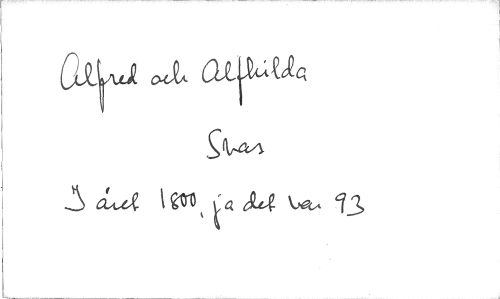 Alfred och Alfhilda
Svar
I året 1800, ja det var 93